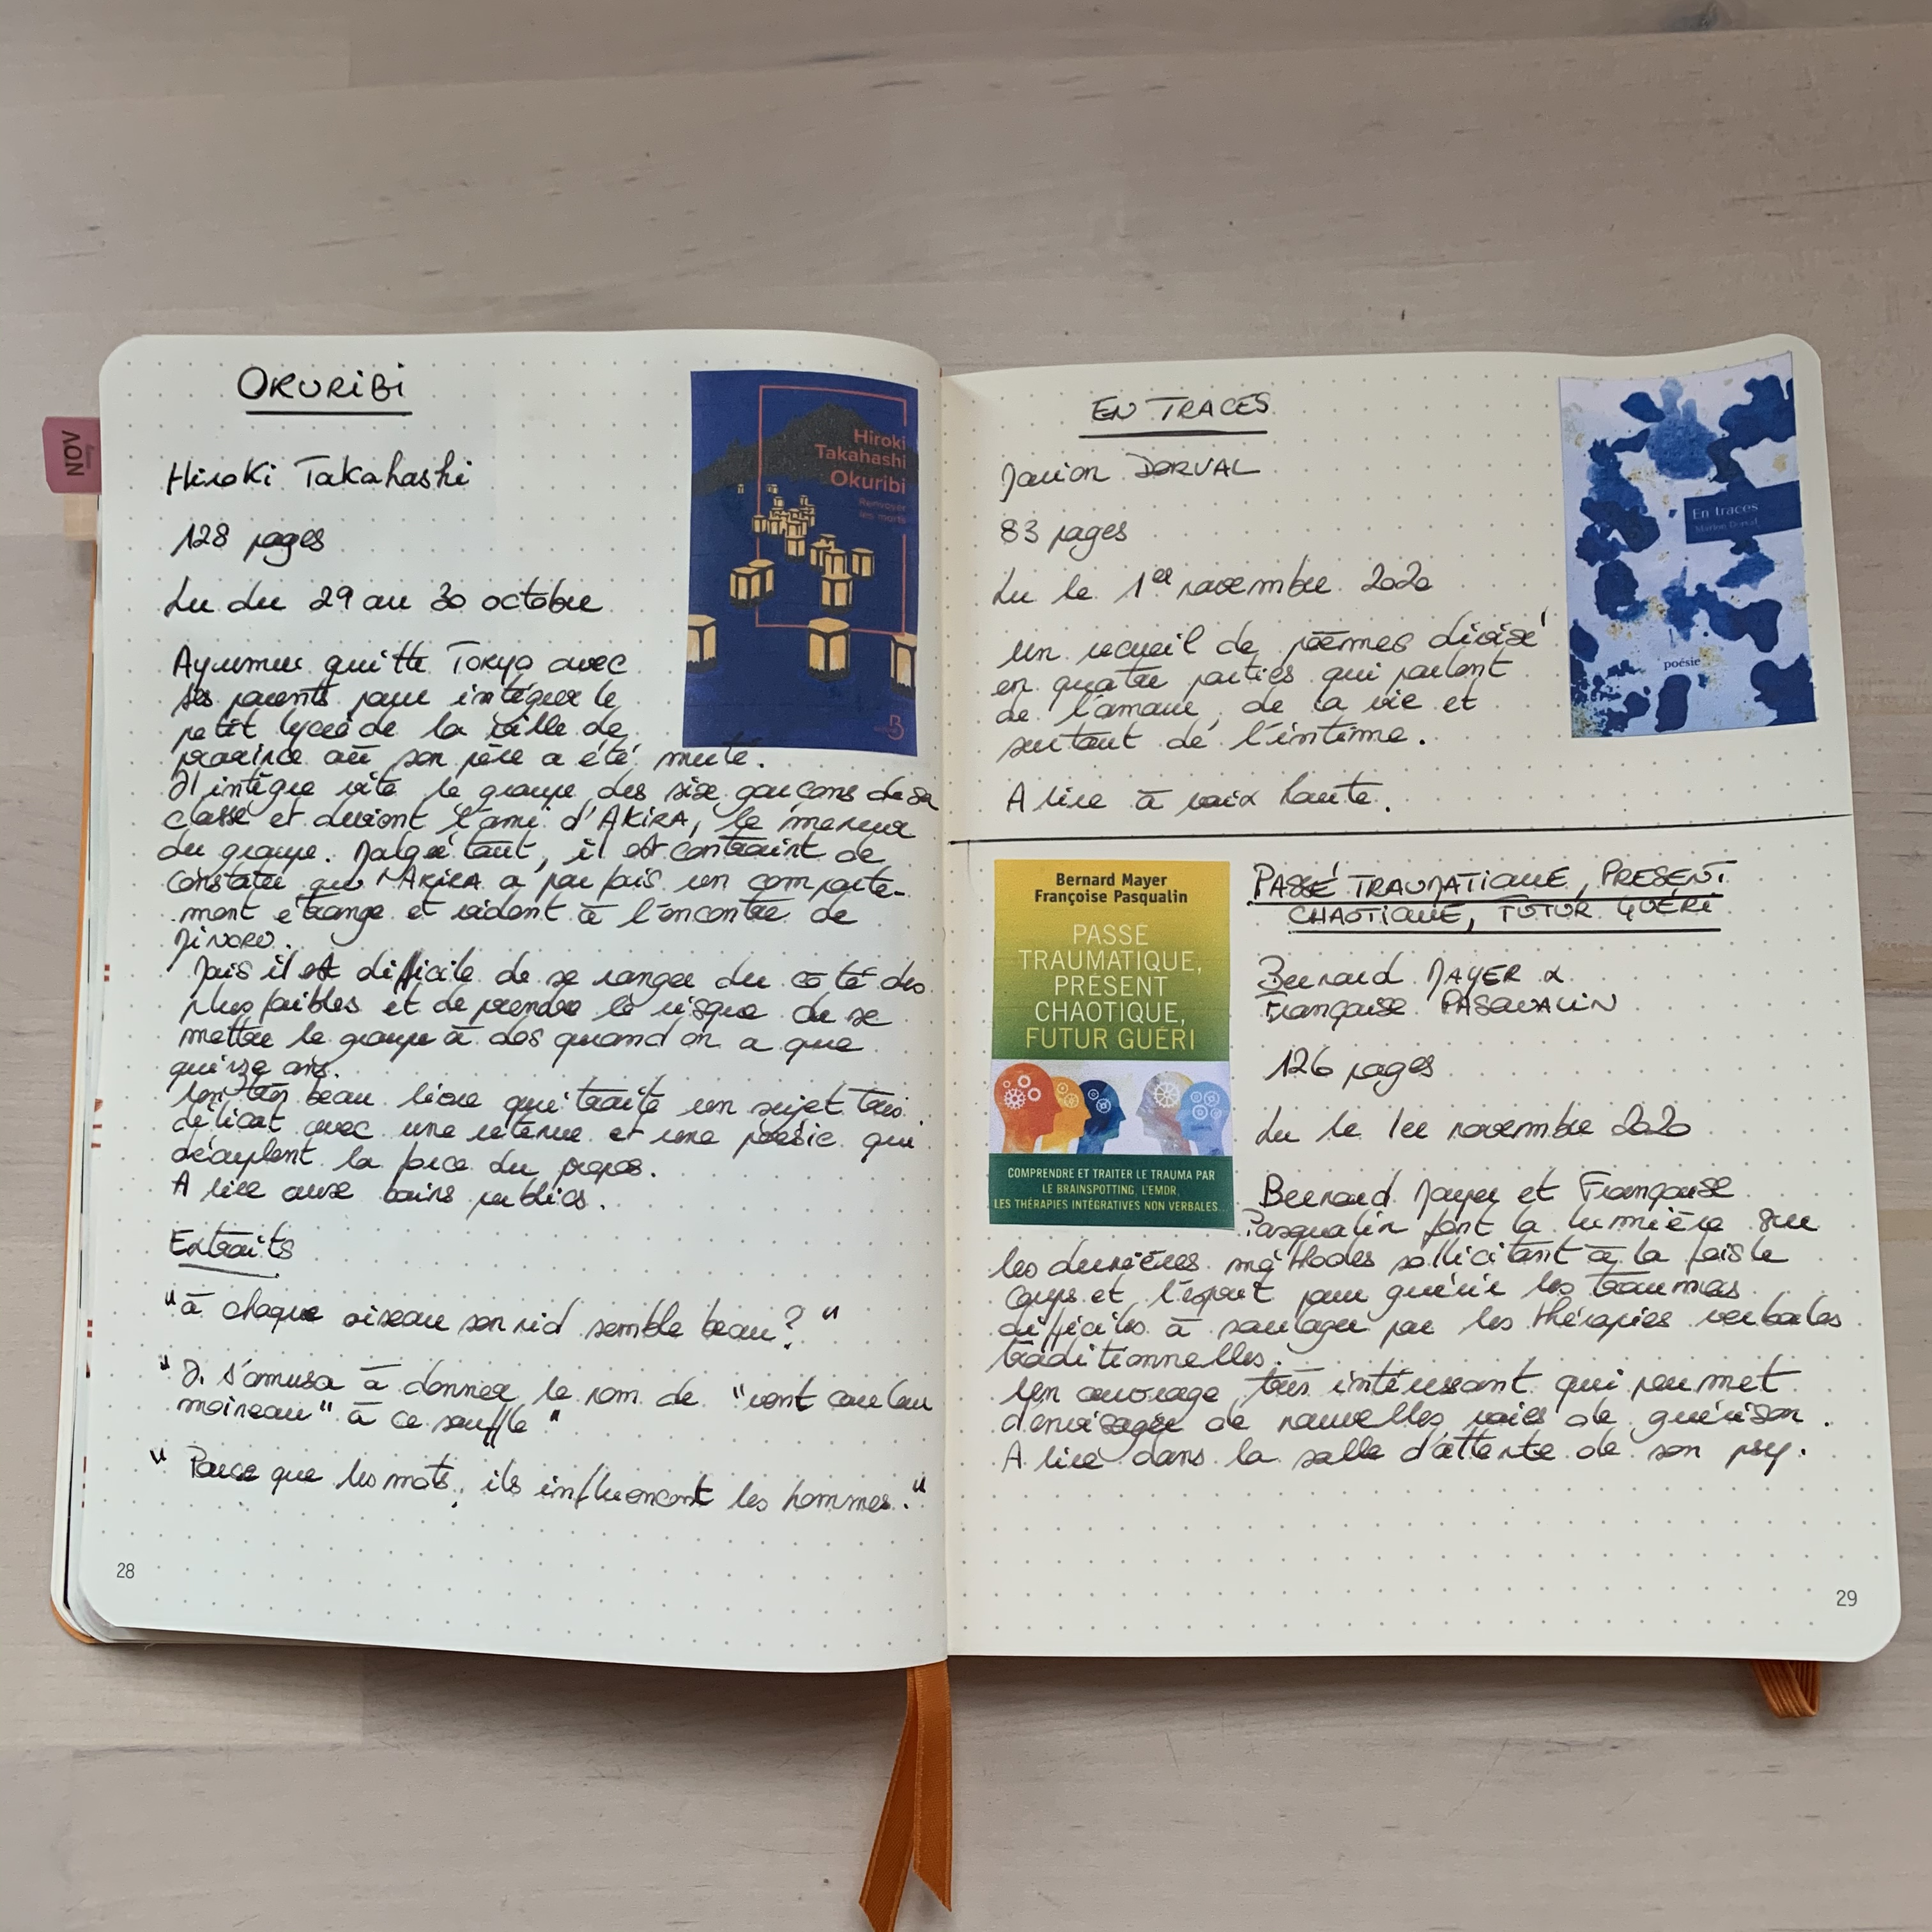 NOV
OKURIBI
Hiroki Takahashi
128 pages
Lu du 29 au 30 octobre
Hiroki
Takahashi
Okuribi
Renvoyer
les morts
Ayumu quitte Tokyo avec
ses parents pour intégrer le
petit lycée de la ville de
province où son père a été muté.
Il intègre vite le groupe des six garçons de sa
classe et devient l'ami d'AKIRA, le meneur
du groupe. Malgré tout, il est contraint de
constater que AKIRA a parfois un comporte-
ment étrange et violent à l'encontre de
MINORU.
Mais il est difficile de se ranger du côté des
plus faibles et de prendre le risque de se
mettre le groupe à dos quand on a que
quinze ans.
Un très beau livre qui traite un sujet très
délicat avec une retenue et une poésie qui
décuplent la force du propos.
A lire aux bains publics.
Extraits
"à chaque oiseau son nid semble beau?"
"Il s'amusa à donner le nom de "vent couleur
moineau" à ce souffle"
"Parce que les mots, ils influencent les hommes."
28
EN TRACES
Marion DORVAL
83 pages
Lu le 1er novembre 2020
En traces
Marion Dorval
poésie
Un recueil de poèmes divisé
en quatre parties qui parlent
de l'amour, de la vie et
surtout de l'intime.
A lire à voix haute.
Bernard Mayer
Françoise Pasqualin
PASSÉ
TRAUMATIQUE,
PRÉSENT
CHAOTIQUE,
FUTUR GUÉRI
COMPRENDRE ET TRAITER LE TRAUMA PAR
LE BRAINSPOTTING, L'EMDR,
LES THÉRAPIES INTÉGRATIVES NON VERBALES...
PASSÉ TRAUMATIQUE, PRESENT
CHAOTIQUE, FUTUR GUÉRI
Bernard MAYER &
Françoise PASQUALIN
126 pages
Lu le 1er novembre 2020
Bernard Mayer et Françoise
Pasqualin font la lumière sur
les dernières méthodes sollicitant à la fois le
corps et l'esprit pour guérir les traumas
difficiles à soulager par les thérapies verbales
traditionnelles.
Un ouvrage très intéressant qui permet
d'envisager de nouvelles voies de guérison.
A lire dans la salle d'attente de son psy.
29